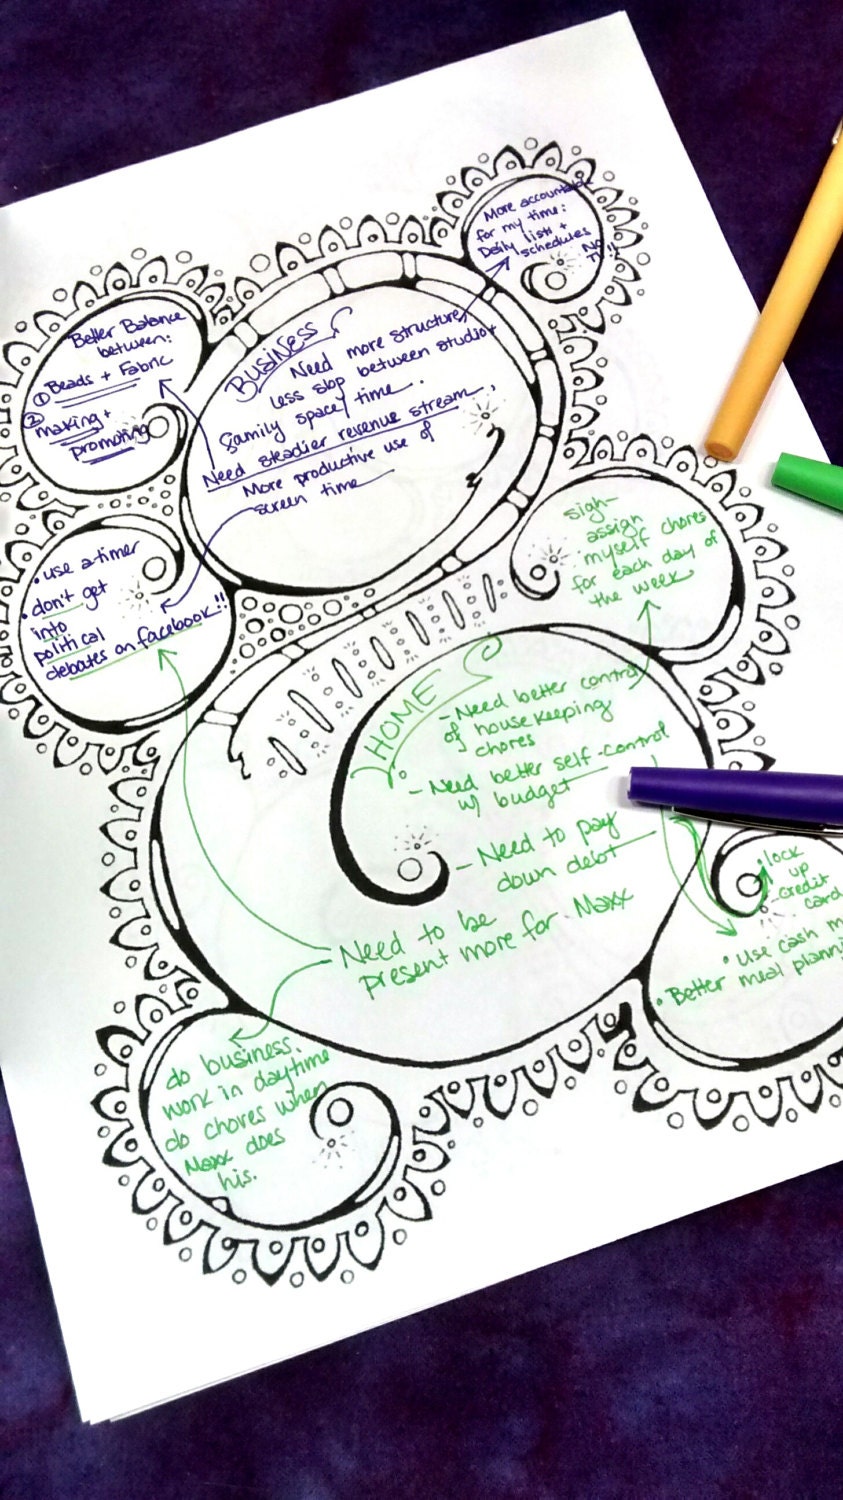 More
for my time:
Daily lists +
schedules
No
TV!!
Better Balance
between:
① Beads + Fabric
② making +
promoting
BUSINESS
Need more structure,
less slop between studio +
family space/time.
Need steadier revenue stream,
More productive use of
screen time
• use a timer
• don't get
into
political
debates on facebook!!
sigh-
assign
myself chores
for each day of
the week
HOME
- Need better control
of housekeeping
chores
- Need better self-control
w/ budget
- Need to pay
down debt
Need to be
present more for Maxx
• lock
up
credit
card
• Use cash
• Better meal
do business.
work in daytime
do chores when
Maxx does
his.